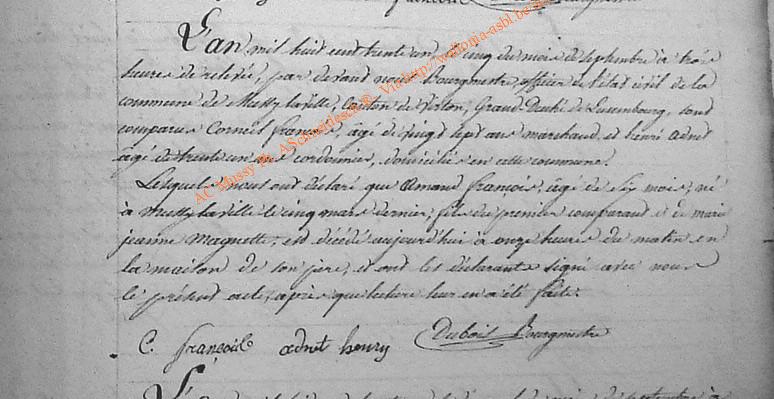 françois Dubois Bourgmestre
L'an mil huit cent trente un le cinq du mois de septembre à trois
heures de relevée, par devant nous Bourgmestre, officier de l'état civil de la
commune de Mussy laville, Canton de Virton, Grand-Duché de Luxembourg, sont
comparus Corneil françois, âgé de vingt sept ans marchand et henri adnet
âgé de trente un ans cordonnier, domiciliés en cette commune.
Lesquels nous ont déclaré que Armand françois, âgé de six mois, né
à Mussy laville le cinq mars dernier, fils du premier comparant et de marie
jeanne Magnette, est décédé aujourd'hui à onze heures du matin en
la maison de son père, et ont les déclarants signé avec nous
le présent acte, après que lecture leur en a été faite.
C. françois adnet henry Dubois Bourgmestre
AC Mussy Ph. ASchneidesch ©. Via http://wallonia-asbl.be